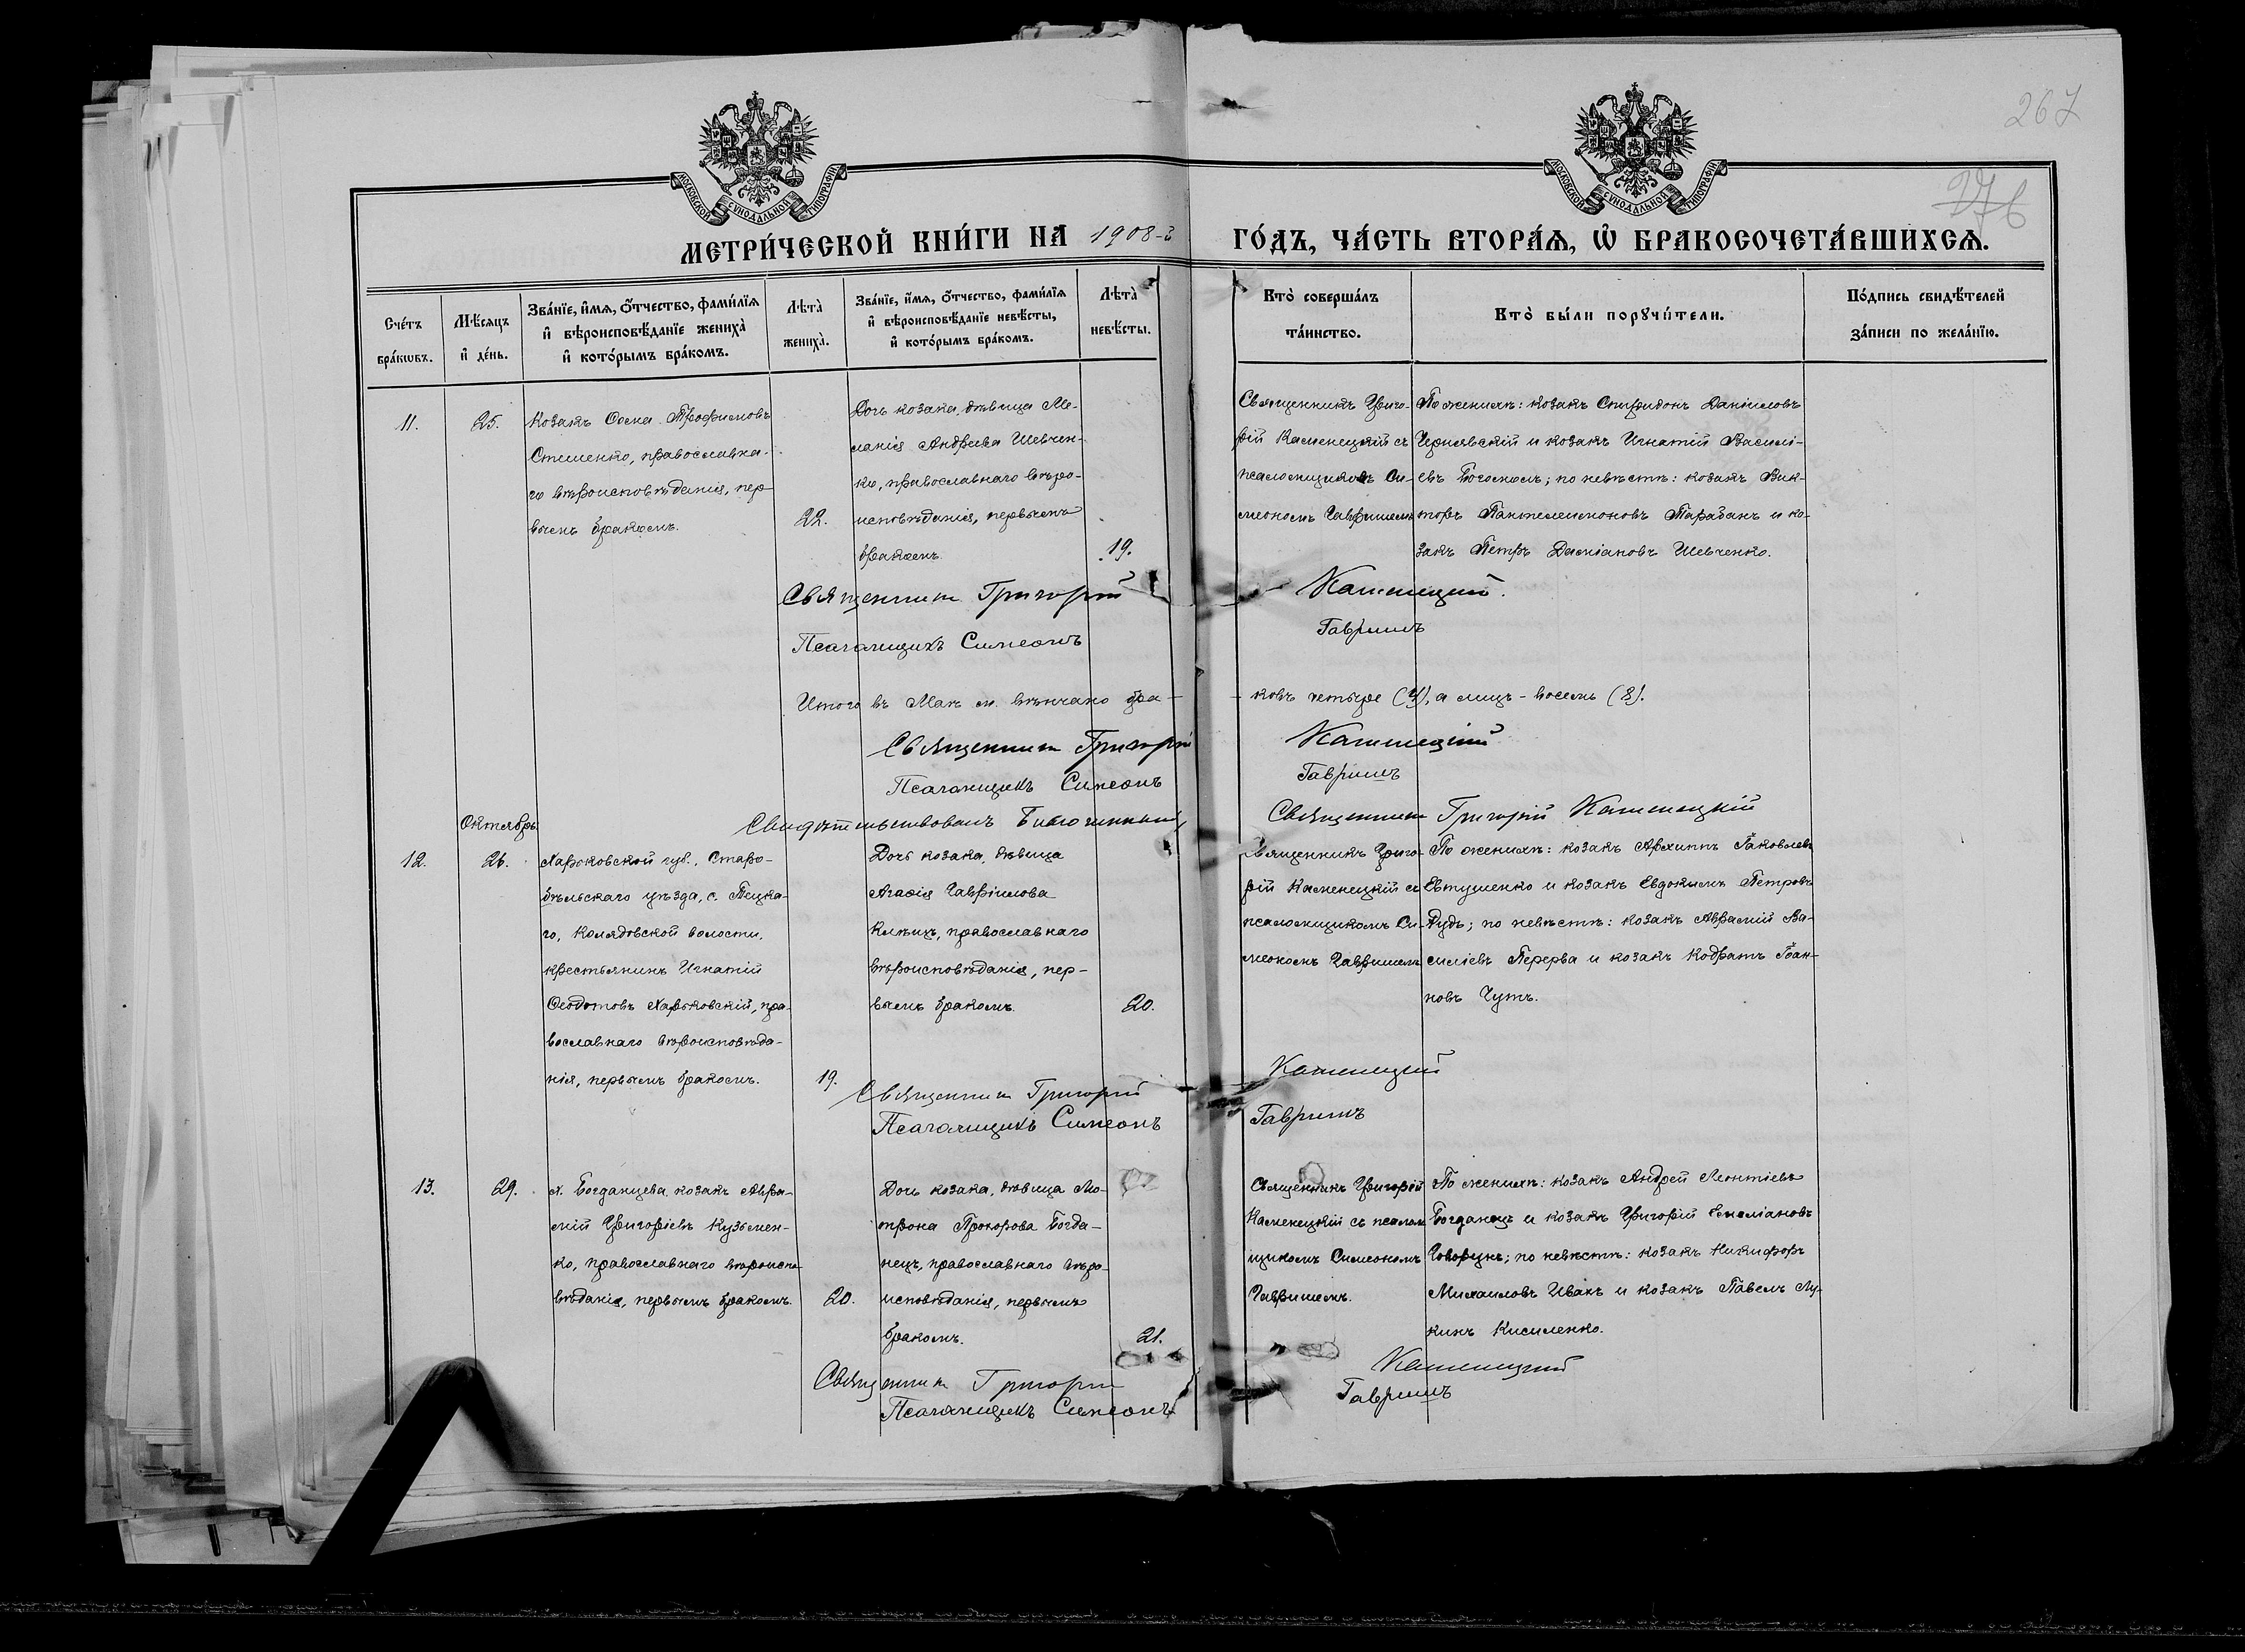 267
276
МОСКОВСКОЙ СѴНОДАЛЬНОЙ ТИПОГРАФІИ
МОСКОВСКОЙ СѴНОДАЛЬНОЙ ТИПОГРАФІИ
МЕТРИ́ЧЕСКОЙ КНИ́ГИ НА 1908-й ГО́ДЪ, ЧА́СТЬ ВТОРА́Ѧ, Ѡ҆ БРАКОСОЧЕТА́ВШИХСѦ.
Сче́тъ бра́кѡвъ.
Мѣ́сяцъ и҆ де́нь.
Зва́нїе, и҆́мѧ, ѻ҆́тчество, фами́лїѧ
и҆ вѣроисповѣ́данїе жениха̀
и҆ кото́рымъ бра́комъ.
Лѣта̀ жениха̀.
Зва́нїе, и҆́мѧ, ѻ҆́тчество, фами́лїѧ
и҆ вѣроисповѣ́данїе невѣ́сты,
и҆ кото́рымъ бра́комъ.
Лѣта̀ невѣ́сты.
Кто̀ соверша́лъ
та́инство.
Кто̀ бы́ли порꙋчи́тели.
По́дпись свидѣ́телей
за́писи по жела́нїю.
11.
25.
Козакъ Сосма Трофимовъ
Стеценко, православна-
го вѣроисповѣданія, пер-
вымъ бракомъ.
22.
Дочь козака, дѣвица Ме-
ланія Андреева Шевчен-
ко, православнаго вѣро-
исповѣданія, первымъ
бракомъ.
19.
Священникъ Григо-
рій Каменецкій съ
псаломщикомъ Си-
меономъ Гавришемъ
По женихѣ: козакъ Спиридонъ Даніиловъ
Чернявскій и козакъ Игнатій Василі-
евъ Богомолъ; по невѣстѣ: козакъ Вик-
торъ Пантелеимоновъ Тарабанъ и ко-
закъ Петръ Даміановъ Шевченко.
Священникъ Григорій Каменецкій.
Псаломщикъ Симеонъ Гавришъ
Итого въ Маѣ м. вѣнчано бра-
ковъ четыре (4), а лицъ - восемь (8).
Священникъ Григорій Каменецкій
Псаломщикъ Симеонъ Гавришъ
Свидѣтельствовалъ Благочинный, Священникъ Григорій Каменецкій
Октябрь.
12.
26.
Харьковской губ., Старо-
бѣльскаго уѣзда, с. Пецка-
го, Колядовской волости,
крестьянинъ Игнатій
Ѳеодотовъ Харьковскій, пра-
вославнаго вѣроисповѣда-
нія, первымъ бракомъ.
19.
Дочь козака, дѣвица
Агаѳія Гавріилова
Клищъ, православнаго
вѣроисповѣданія, пер-
вымъ бракомъ.
20.
Священникъ Григо-
рій Каменецкій съ
псаломщикомъ Си-
меономъ Гавришемъ
По женихѣ: козакъ Архиппъ Іаковлевъ
Евтушенко и козакъ Евдокимъ Петровъ
Дудь; по невѣстѣ: козакъ Аврамій Ва-
силіевъ Перерва и козакъ Кодратъ Іоан-
новъ Чутъ.
Священникъ Григорій Каменецкій
Псаломщикъ Симеонъ Гавришъ
13.
29.
х. Богданцева козакъ Авра-
мій Григоріевъ Кузьмен-
ко, православнаго вѣроиспо-
вѣданія, первымъ бракомъ.
20.
Дочь козака, дѣвица Мо-
трона Прохорова Богда-
нецъ, православнаго вѣро-
исповѣданія, первымъ
бракомъ.
21.
Священникъ Григорій
Каменецкій съ псалом
щикомъ Симеономъ
Гавришемъ.
По женихѣ: козакъ Андрей Леонтіевъ
Богданецъ и козакъ Григорій Емеліановъ
Говорунъ; по невѣстѣ: козакъ Никифоръ
Михаиловъ Ивахъ и козакъ Павелъ Лу-
кинъ Кисиленко.
Священникъ Григорій Каменецкій
Псаломщикъ Симеонъ Гавришъ